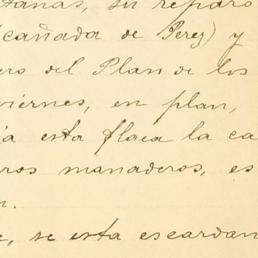 tanas, su reparo
(cañada de Perez) y
ero del Plan de los
viernes, en plan,
ia esta flaca la ca
ros manaderos, es
n.
e, se esta escardan